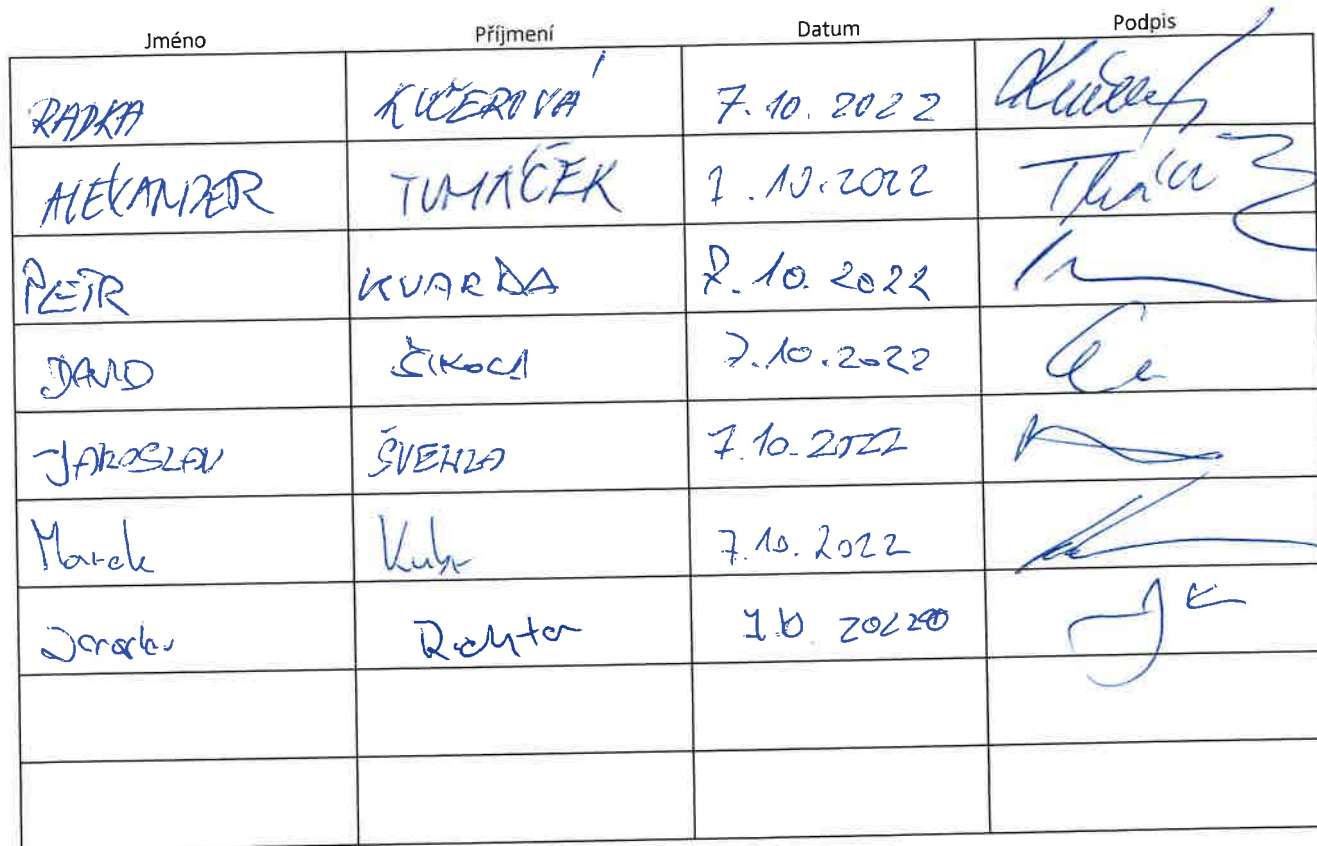 Jméno Příjmení Datum Podpis
RADKA KUČEROVÁ 7.10.2022
ALEXANDER TUMÁČEK 7.10.2022
PETR KVARDA 7.10.2022
DAVID ČIKOCI 7.10.2022
JAROSLAV ŠVEHLA 7.10.2022
Marek 7.10.2022
Richter